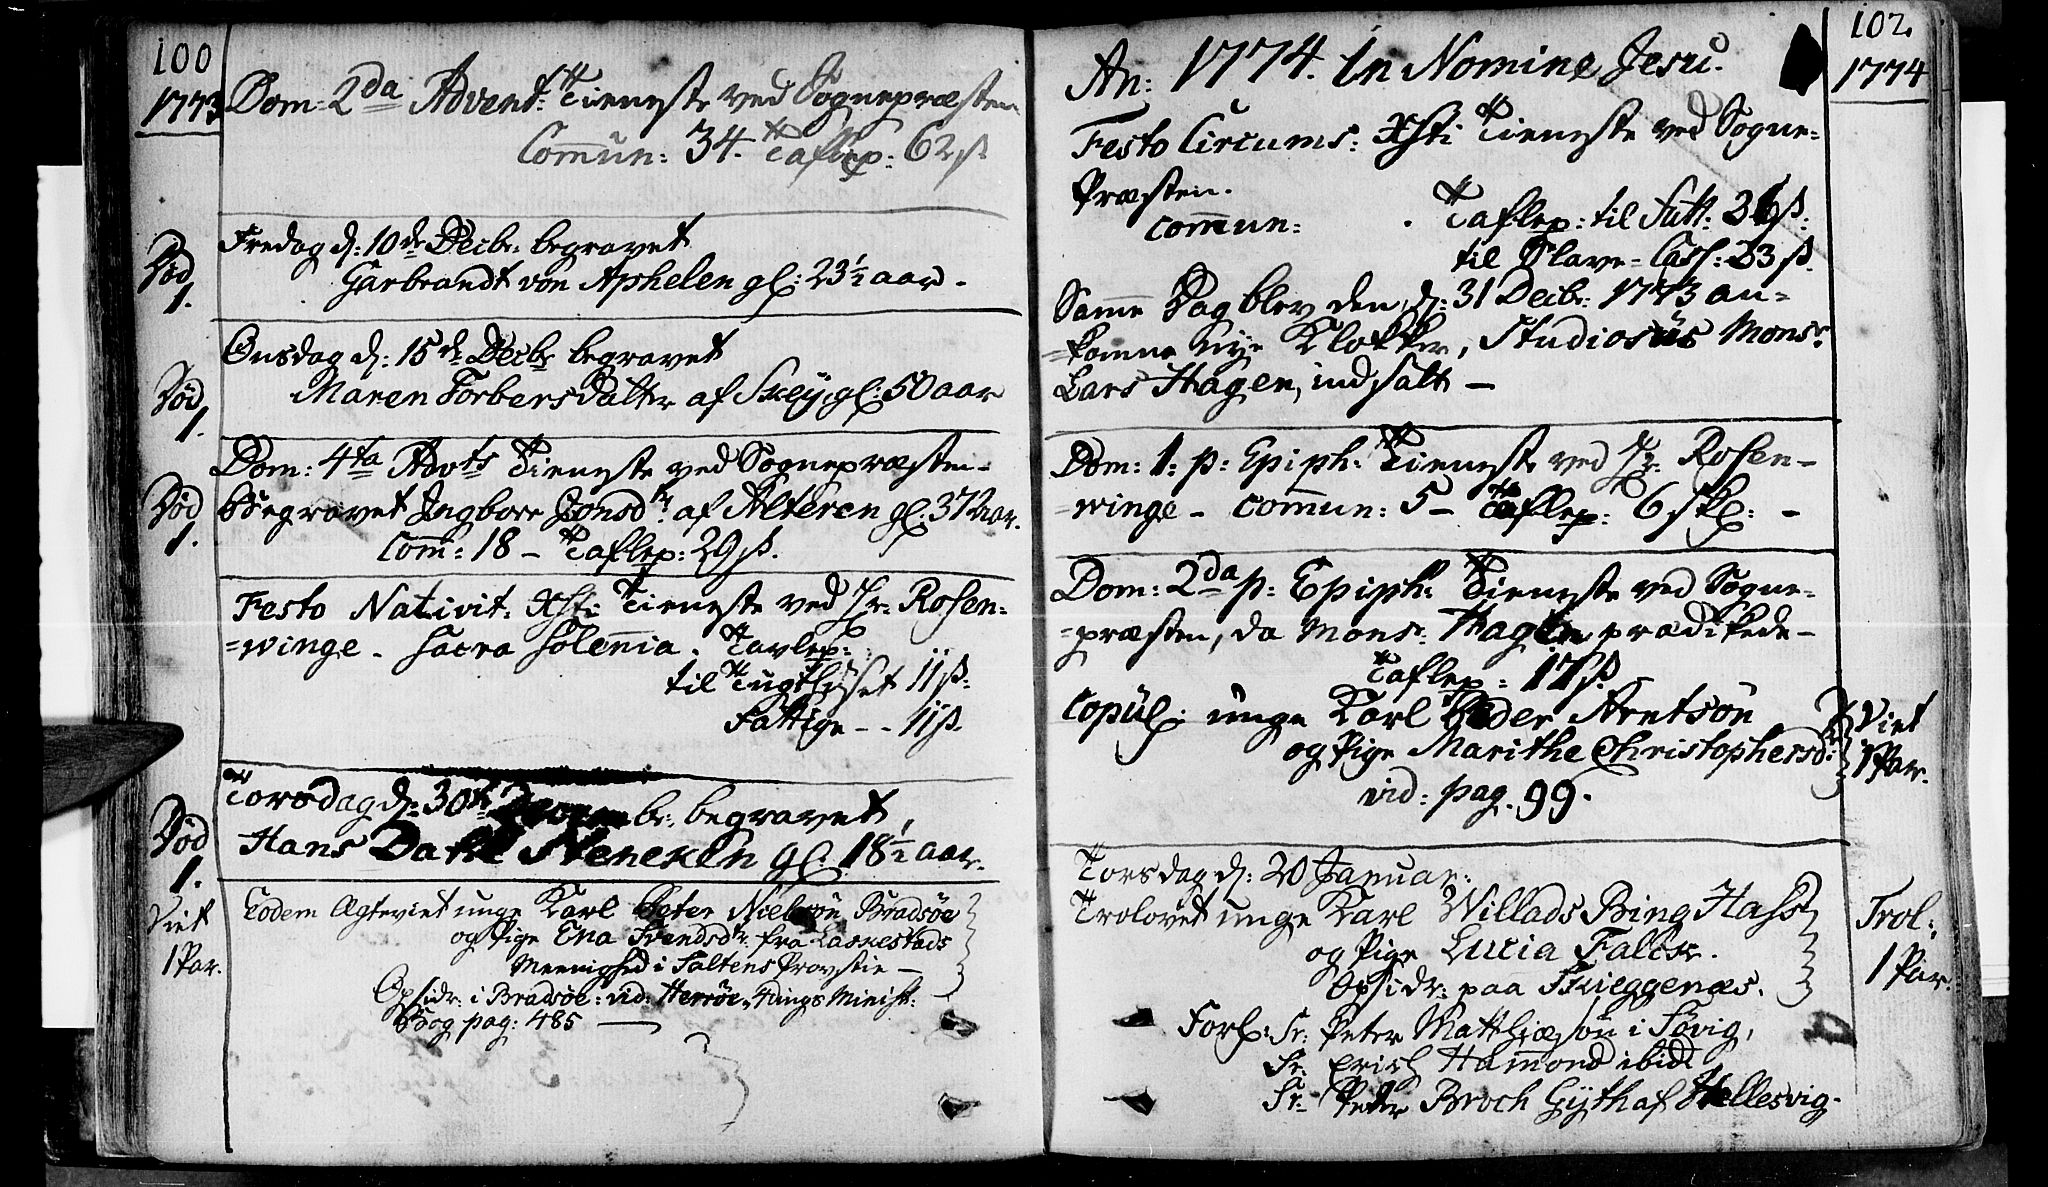 100
1773
Dom: 2da Advent: Tieneste ved Sognepræsten
Com̅un: 34. Taflep: 62 ß.
Fredag d: 10de Decbr: begravet
Død
1.
Garbrandt von Aphelen gl: 23½ aar.
Onsdag d: 15de Decbr begravet
Død
1.
Maren Torbersdatter af gl: 50 aar
Dom: 4ta Advts Tieneste ved Sognepræsten
Død
1.
begravet Ingborr Jonsdtr: af Alteren gl: 37 aar.
Com̅: 18 – Taflep: 29 ß.
Festo Nativit: Xsti Tieneste ved Hr: Rosen=
=winge – Sacra Solem̅ia. Tavlep:
til Tugthuset 11 ß.
Fattige – – 11 ß.
Torsdag d: 30te br: begravet
Død
1.
Hans gl: 18½ aar.
Viet
1 Par.
Eodem Ægteviet unge Karl Peter Nielsøn Bradsøe
og Pige Ena Svendsdtr. fra Laskestads
Meenighed i Saltens Provstie –
Opsidr: i Bradsøe: vid: Herrøe, Minist:
Bog pag: 485 –
102.
1774
An: 1774. In Nomine Jesu.
Festo Circums: Xsti Tieneste ved Sogne=
Præsten.
Com̅un: . Taflep: til Fatt: 36 ß.
til Slave-Cass: 33 ß.
Sam̅e Dag blev den d: 31 Decbr: 1773 an=
=komne nye Klokker, Studiosus Monsr:
Lars Hagen, indsatt –
Dom: 1: p: Epiph: Tieneste ved Hr: Rosen=
=winge – Com̅un: 5 – Taflep: 6 skl: –
Dom: 2da p: Epiph: Tieneste ved Sogne=
=præsten, da Monsr: Hagen prædikede –
Taflep: 17 ß.
Copul: unge Karl Peder Arntsøn
og Pige Marithe Christophersd:
vid: pag. 99.
Viet
1 Par.
Torsdag d: 20 Januar:
Trolovet unge Karl Willads Bing Hass
og Pige Lucia Falch.
Opsidr: paa Skieggenæs.
Trol:
1 Par.
Forl: Sr: Peter Matthiæsøn i Søvig,
Sr: Erich Ham̅ond ibid:
Sr: Peter Broch Gÿth af Hellesvig.